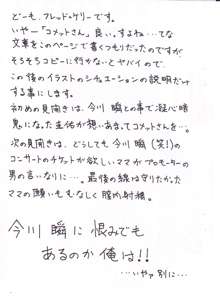 どーも、フレッド・ケリーです。
いやー「コメットさん」良い。するね…てな
文章をこのページで書くつもりだったのですが
そろそろコピーに行かないとヤバイので
この後のイラストのシチュエーションの説明だけ
する事にします。
初めの見開きは、今川 瞬との事で凝心暗
鬼になった圭佑が想いあまってコメットさんを…。
次の見開きは、どうしても今川 瞬(笑!)の
コンサートのチケットが欲しいママがプロモーターの
男の言いなりに…。最後の線は守りたかった
ママの願いもむなしく膣内射精。
今川 瞬に恨みでも
あるのか俺は!!
…いやァ別に…